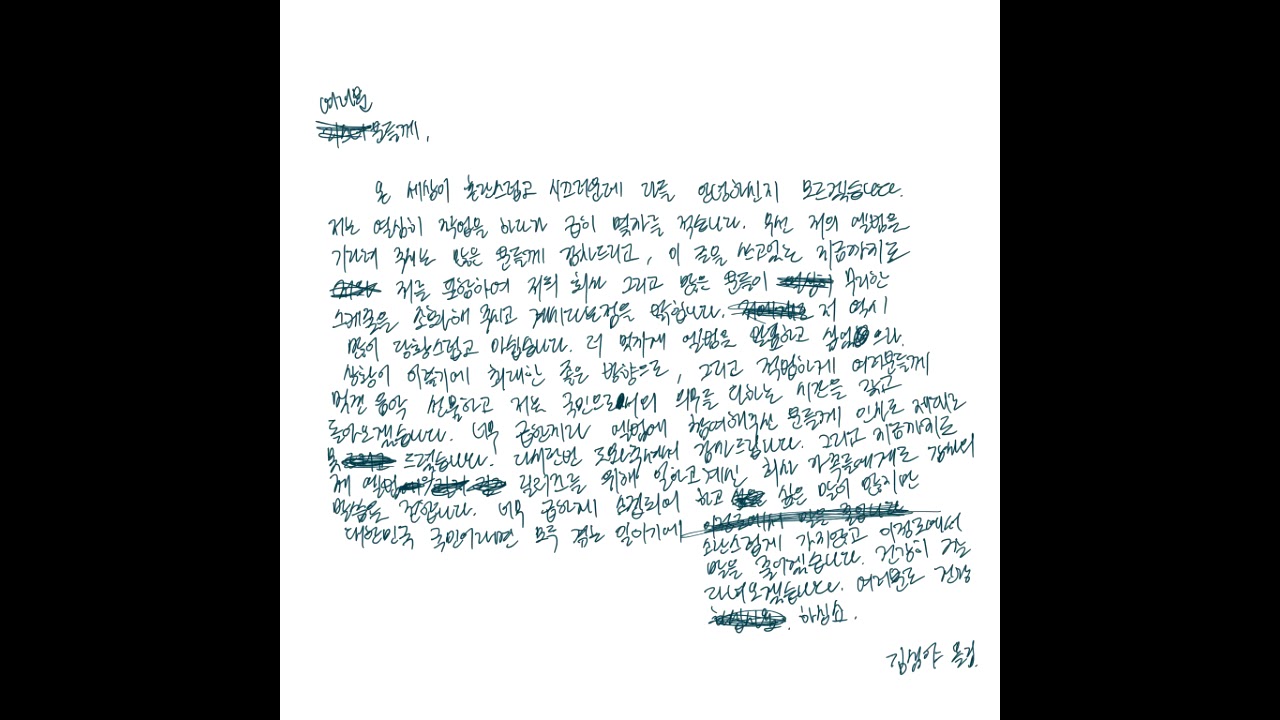 여러분
분들께,
온 세상이 혼란스럽고 시끄러운데 다들 안녕하신지 모르겠습니다.
저는 열심히 작업을 하다가 급히 몇자를 적습니다. 우선 저의 앨범을
기다려 주시는 많은 분들께 감사드리고, 이 글을 쓰고있는 지금까지도
저를 포함하여 저의 회사 그리고 많은 분들이 무리한
스케줄을 소화해 주시고 계시다는점을 밝힙니다. 저 역시
많이 당황스럽고 아쉽습니다. 더 멋지게 앨범을 발표하고 싶었으나
상황이 이렇기에 최대한 좋은 방향으로, 그리고 적법하게 여러분들께
멋진 음악 선물하고 저는 국민으로써의 의무를 다하는 시간을 갖고
돌아오겠습니다. 너무 급한지라 앨범에 참여해주신 분들께 인사도 제대로
못 드렸습니다. 다시한번 도와주셔서 감사드립니다. 그리고 지금까지도
제 앨범 릴리즈를 위해 일하고계신 회사 가족들에게도 감사의
말씀을 전합니다. 너무 급하게 소집되어 하고 싶은 말이 많지만
대한민국 국민이라면 모두 겪는 일이기에
소란스럽게 가지않고 이정도에서
말을 줄이겠습니다. 건강히
다녀오겠습니다. 여러분도 건강
하십쇼.
김심야 올림.